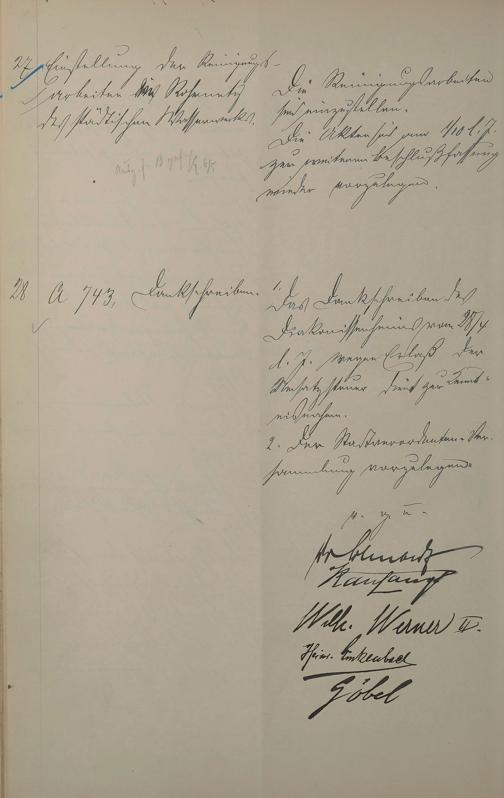 27 Einstellung der Reinigungs-
arbeiten im Rohrnetz
des städtischen Wasserwerks.
Die Reinigungsarbeiten
sind einzustellen.
Die Akten sind am 1/10 l. J.
zur weiteren Beschlußfassung
wieder vorzulegen.
28 A 743, Dankschreiben.
1. Das Dankschreiben des
Diakonissenheims vom 28/4
l. J. wegen Erlaß der
Umsatzsteuer dient zur Kennt-
nisnahme.
2. Der Stadtverordneten-Ver-
sammlung vorzulegen.
v. g. u.
Wilh. Werner II.
Heinr.
Göbel